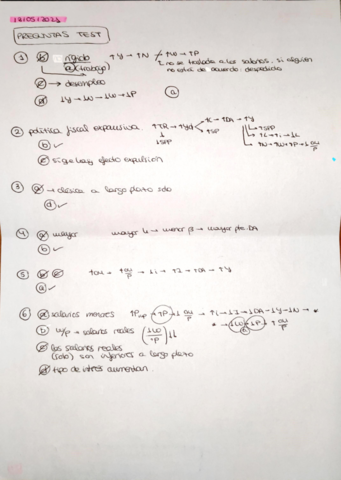 18/05/2023
PREGUNTAS TEST
① b) rígido ↑Y → ↑N ↑W → ↑P
(↓xtrabajo) no se traslada a los salarios, si alguien
no está de acuerdo despedido
c) → desempleo
d) ↓Y → ↓N → ↓W → ↓P ⓐ
② política fiscal expansiva ↑TR → ↑Yd ↑C → ↑DA → ↑Y
↓SP ↑SP
b) ✓
c) sigue hay efecto expulsión
③ a) → clásica a largo plazo solo
d) ✓
④ a) mayor mayor → menor β → mayor pte DA
b) ✓
⑤ b) c) ↑OM → ↑OM/P → ↓i → ↑I → ↑DA → ↑Y
a) ✓
⑥ a) salarios menores ↑P → ↑P → ↓OM/P → ↑i → ↓I → ↓DA → ↓Y → ↓N → *
b) W/P → salarios reales (↓W/↑P) ↓↓ * → ↓W → ↓P → ↑OM/P
c) los salarios reales
(solo) son inferiores a largo plazo
d) tipo de interés aumentan